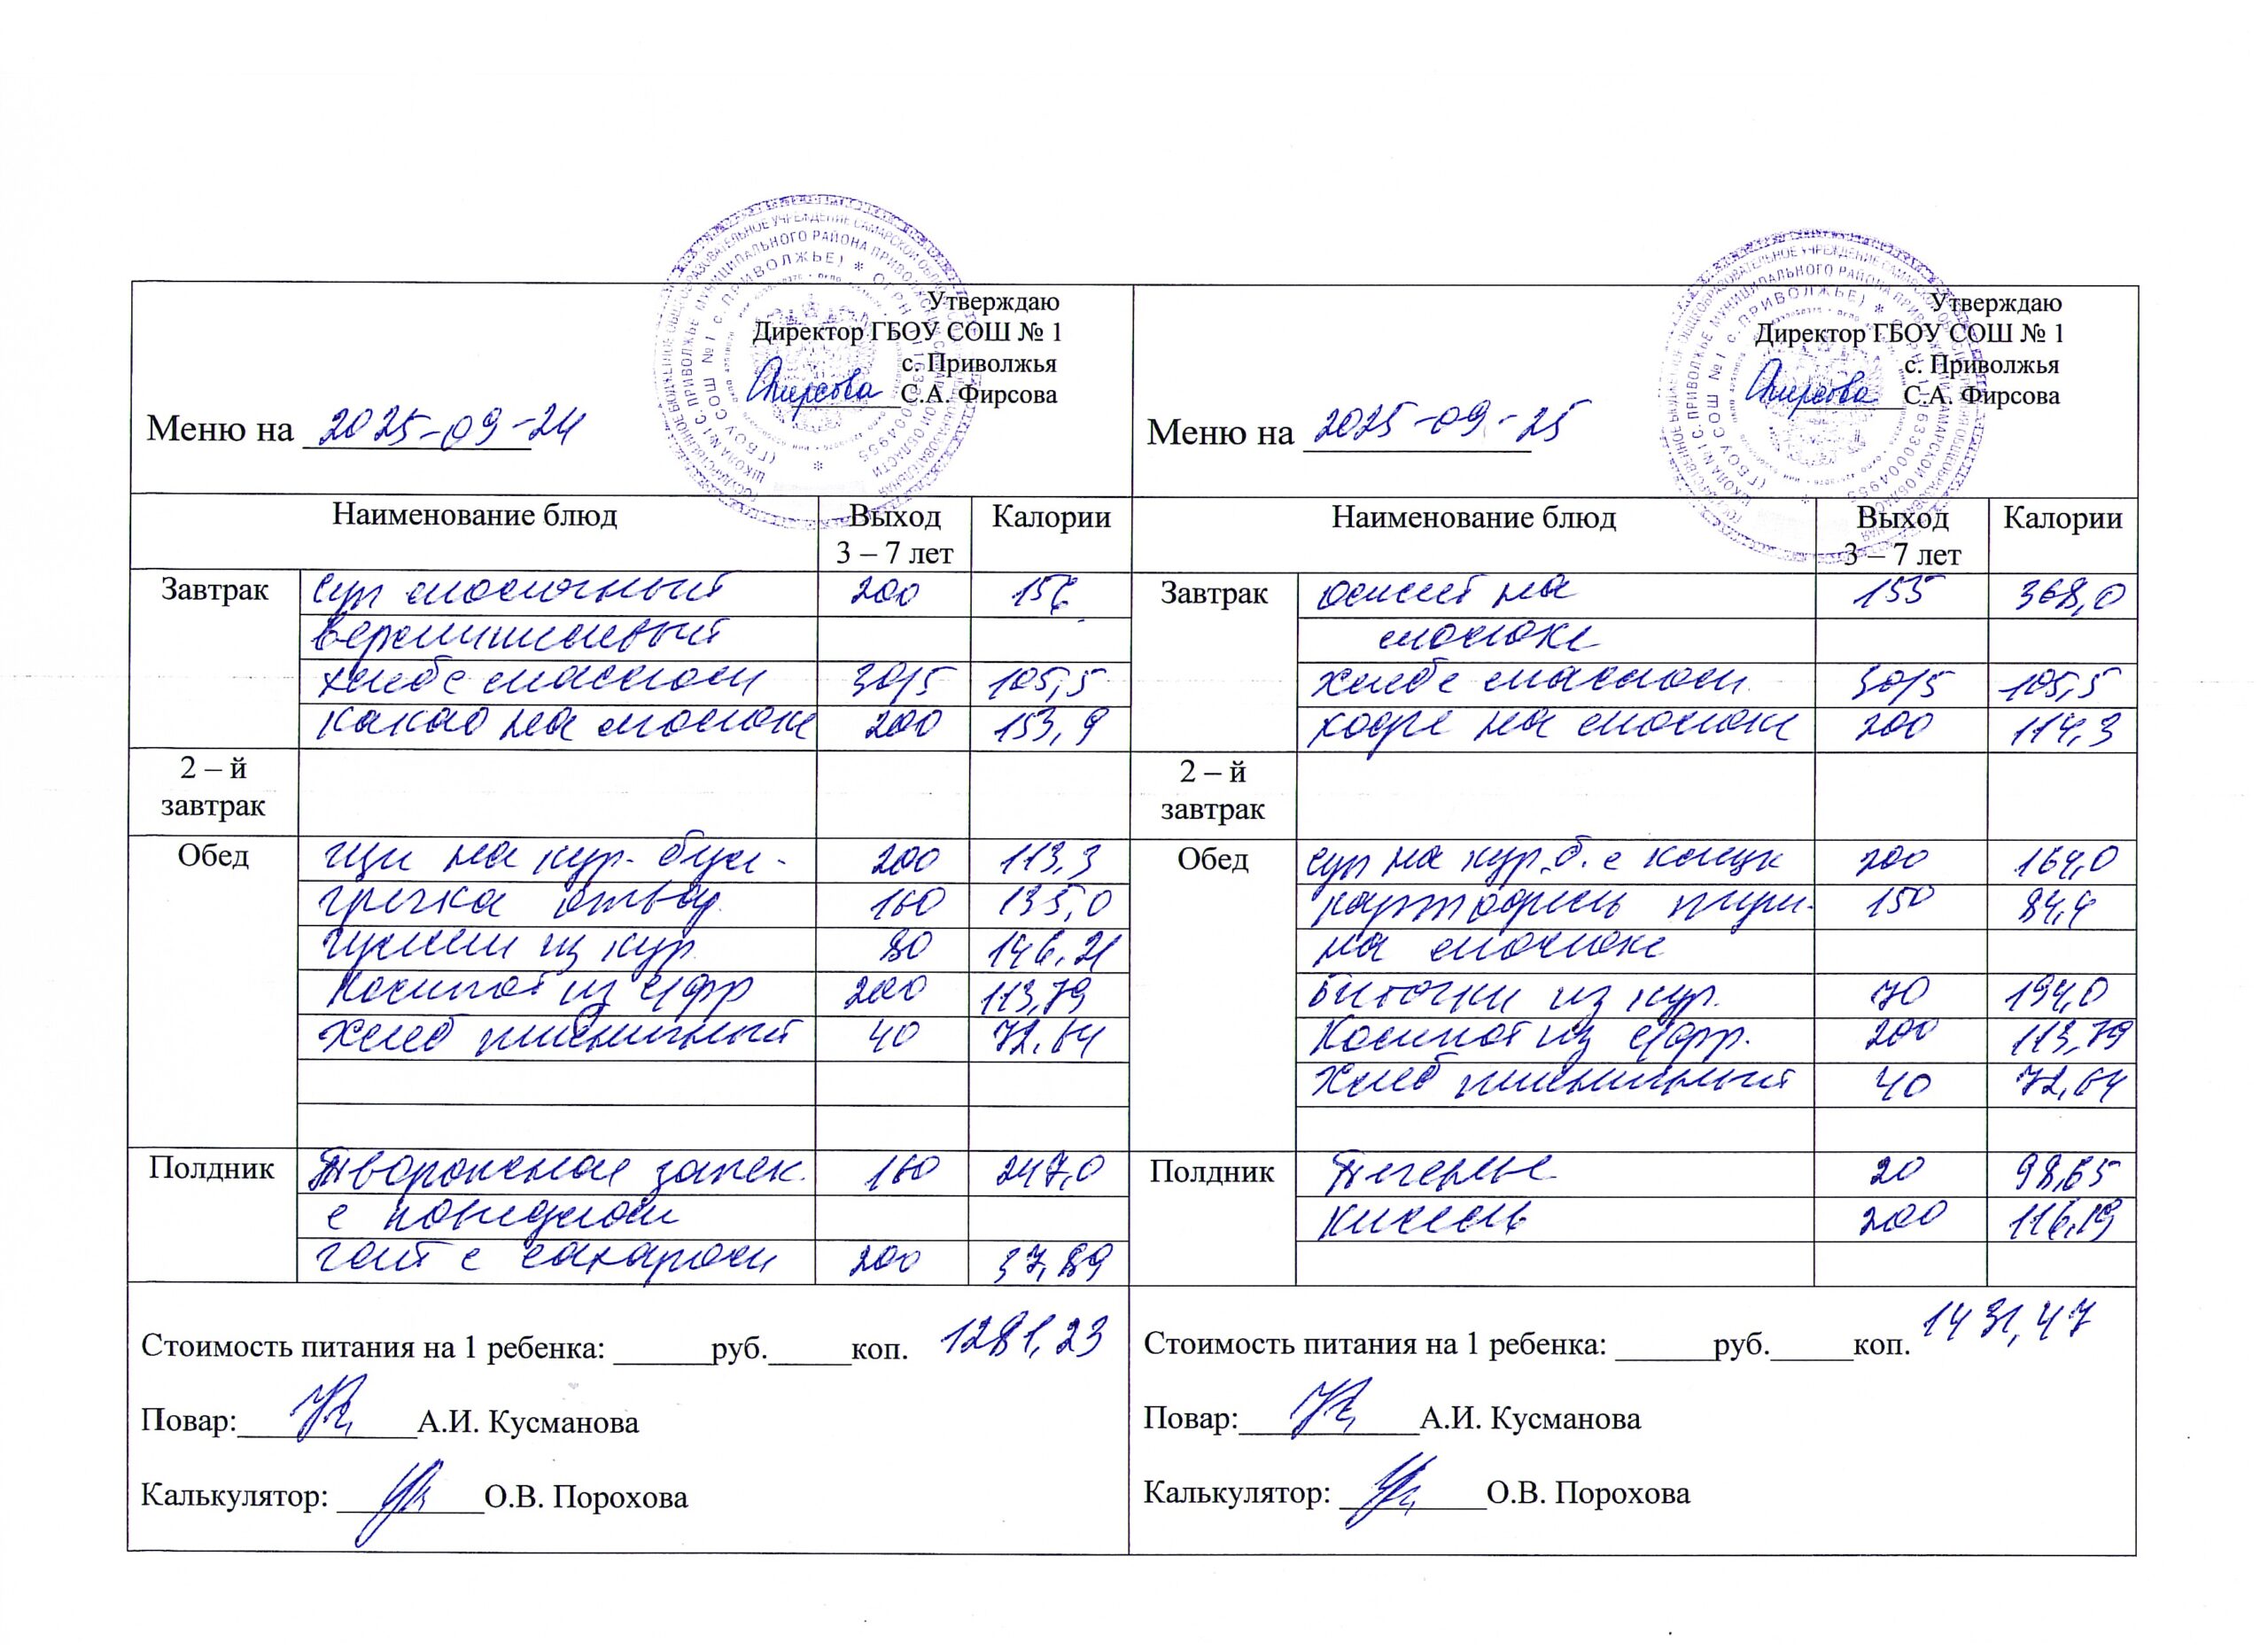 Утверждаю
Директор ГБОУ СОШ № 1
с. Приволжья
С.А. Фирсова
Меню на 2025-09-24
Наименование блюд Выход 3 – 7 лет Калории
Завтрак суп молочный 200 156
вермишелевый
хлеб с маслом 30/5 105,5
какао на молоке 200 153,9
2 – й завтрак
Обед щи на кур. бул. 200 113,3
гречка отвар. 160 135,0
гуляш из кур. 80 146,21
Компот из с/фр 200 113,79
Хлеб пшеничный 40 72,64
Полдник Творожная запек. 160 247,0
с повидлом
чай с сахаром 200 37,89
Стоимость питания на 1 ребенка: ______руб._____коп. 1281,23
Повар: А.И. Кусманова
Калькулятор: О.В. Порохова
Утверждаю
Директор ГБОУ СОШ № 1
с. Приволжья
С.А. Фирсова
Меню на 2025-09-25
Наименование блюд Выход 3 – 7 лет Калории
Завтрак омлет на 155 368,0
молоке
хлеб с маслом 30/5 105,5
кофе на молоке 200 114,3
2 – й завтрак
Обед суп на кур. б. с клецк 200 164,0
картофель пюре 150 84,4
на молоке
Биточки из кур. 70 194,0
Компот из с/фр. 200 113,79
Хлеб пшеничный 40 72,64
Полдник Печенье 20 98,65
кисель 200 116,19
Стоимость питания на 1 ребенка: ______руб._____коп. 1431,47
Повар: А.И. Кусманова
Калькулятор: О.В. Порохова